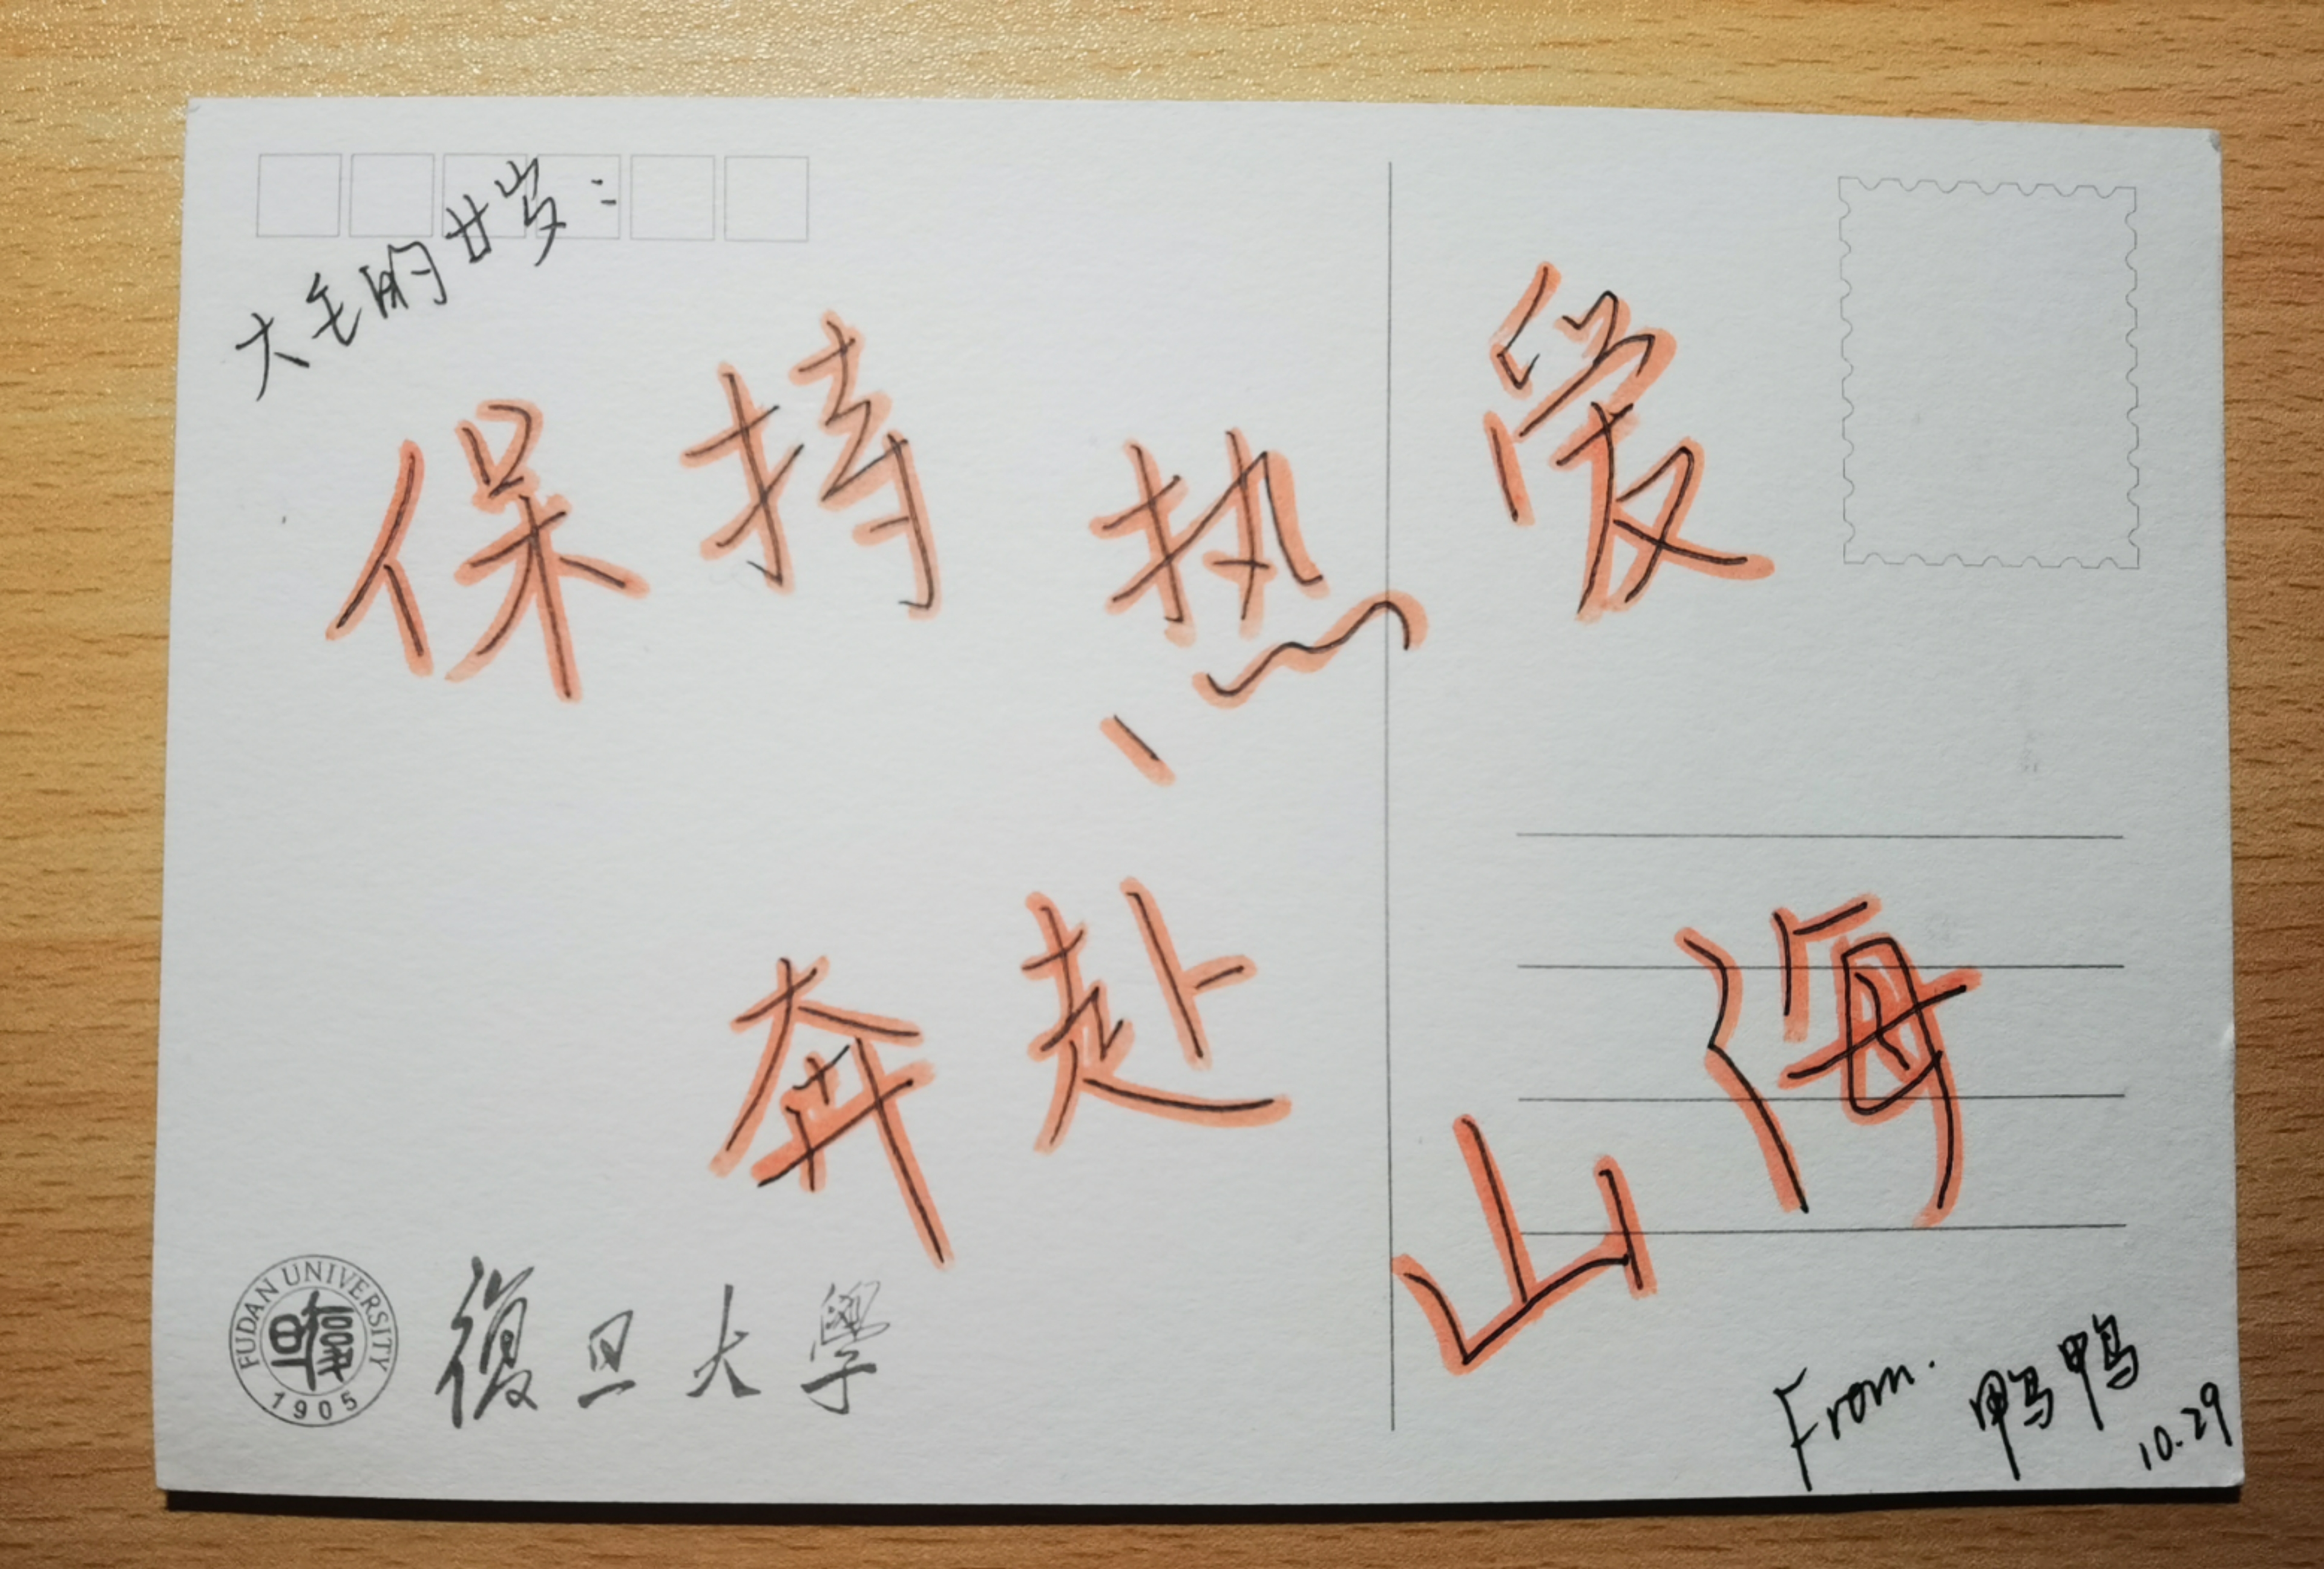 大毛的廿岁：
保持热爱
、
奔赴山海
FUDAN UNIVERSITY
復旦
1905
復旦大學
From. 鸭鸭
10.29